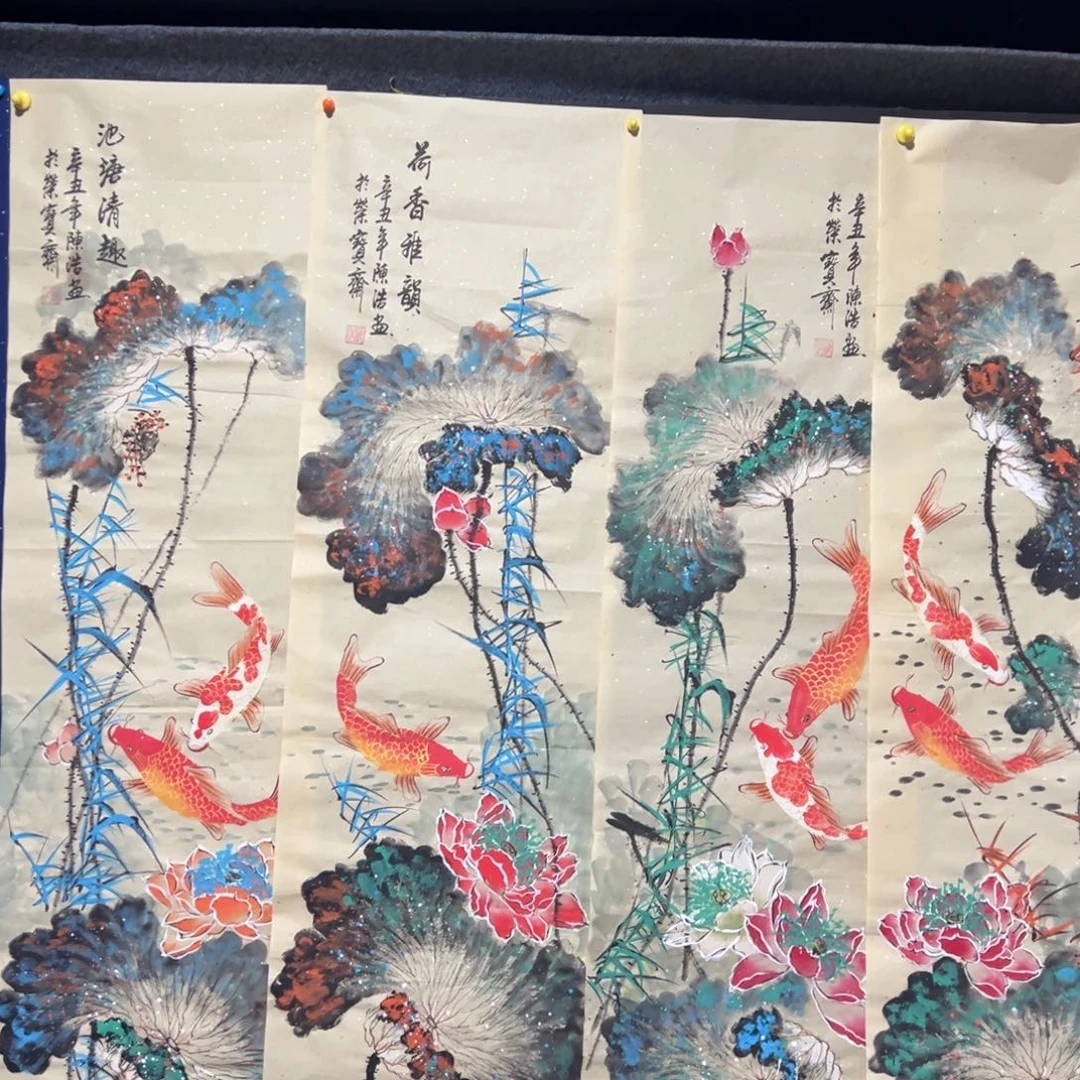 池塘清趣
辛丑年陳浩画
於榮寶齋
荷香雅韻
辛丑年陳浩画
於榮寶齋
辛丑年陳浩画
於榮寶齋